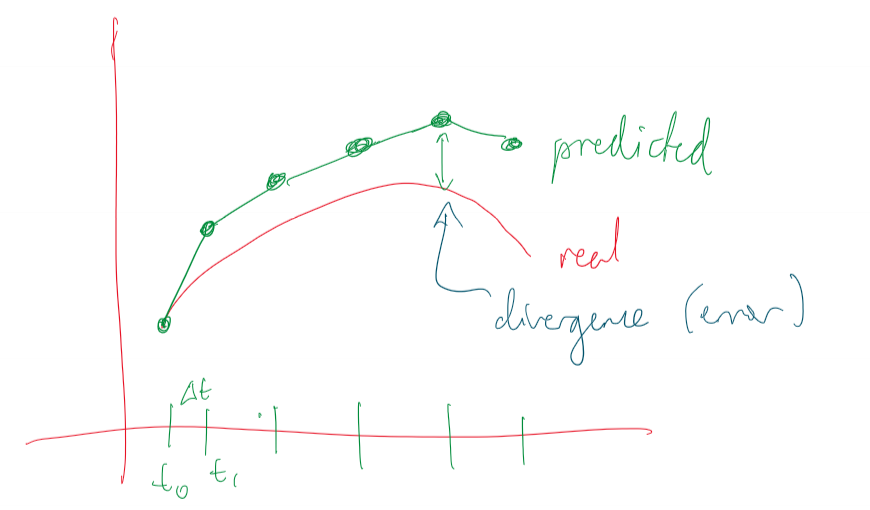 predicted
real
divergence (error)
Δt
t₀ t₁